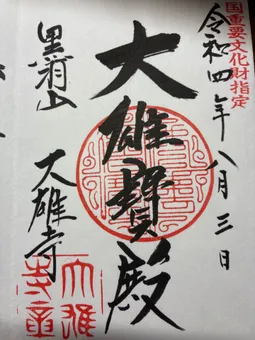 国重要文化財指定
令和四年八月三日
大雄寶殿
黒羽山
大雄寺